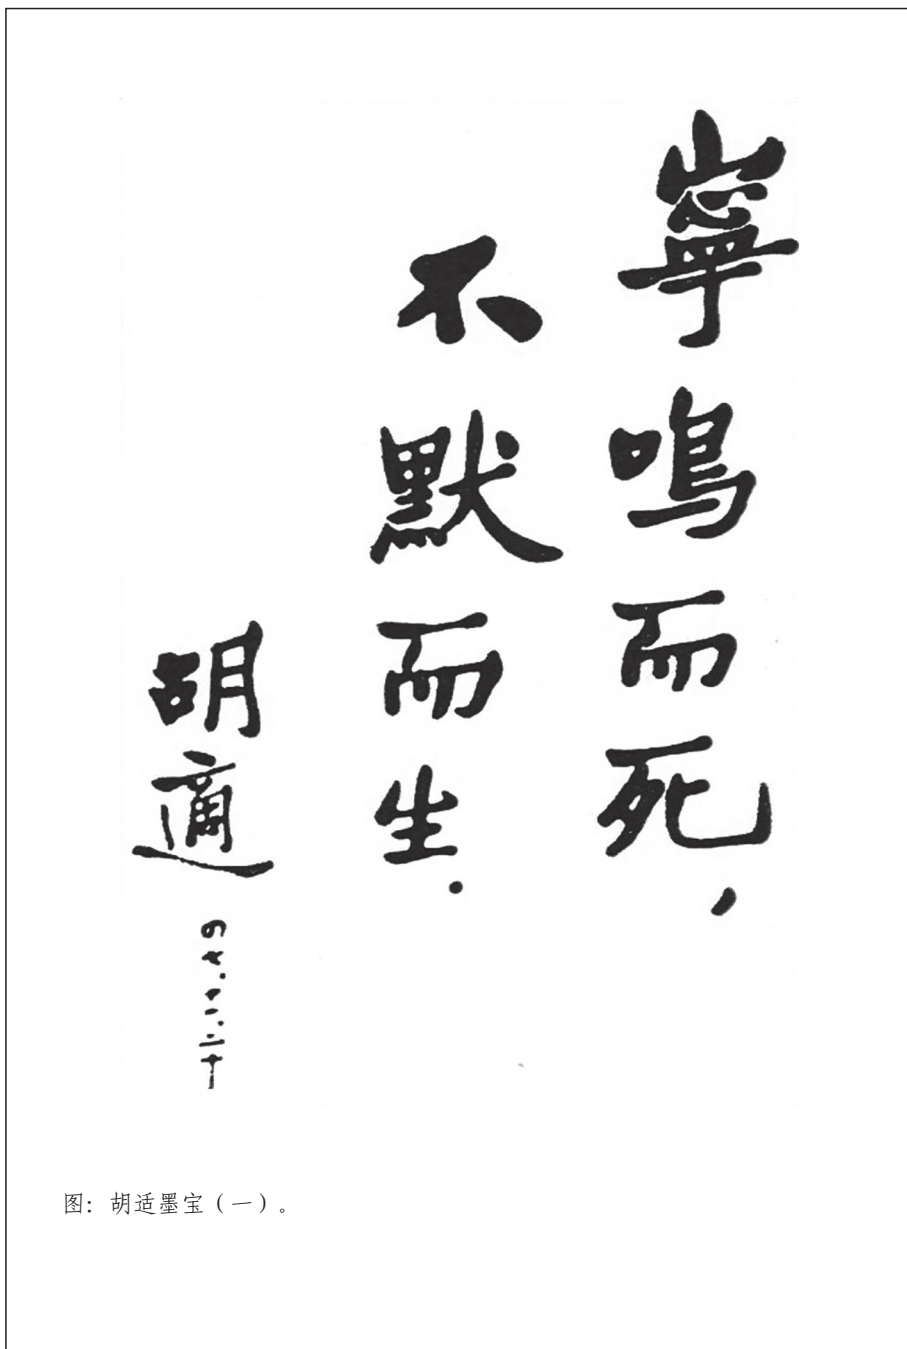 寧鳴而死，
不默而生.
胡適
四七.十一.二十
图：胡适墨宝（一）。